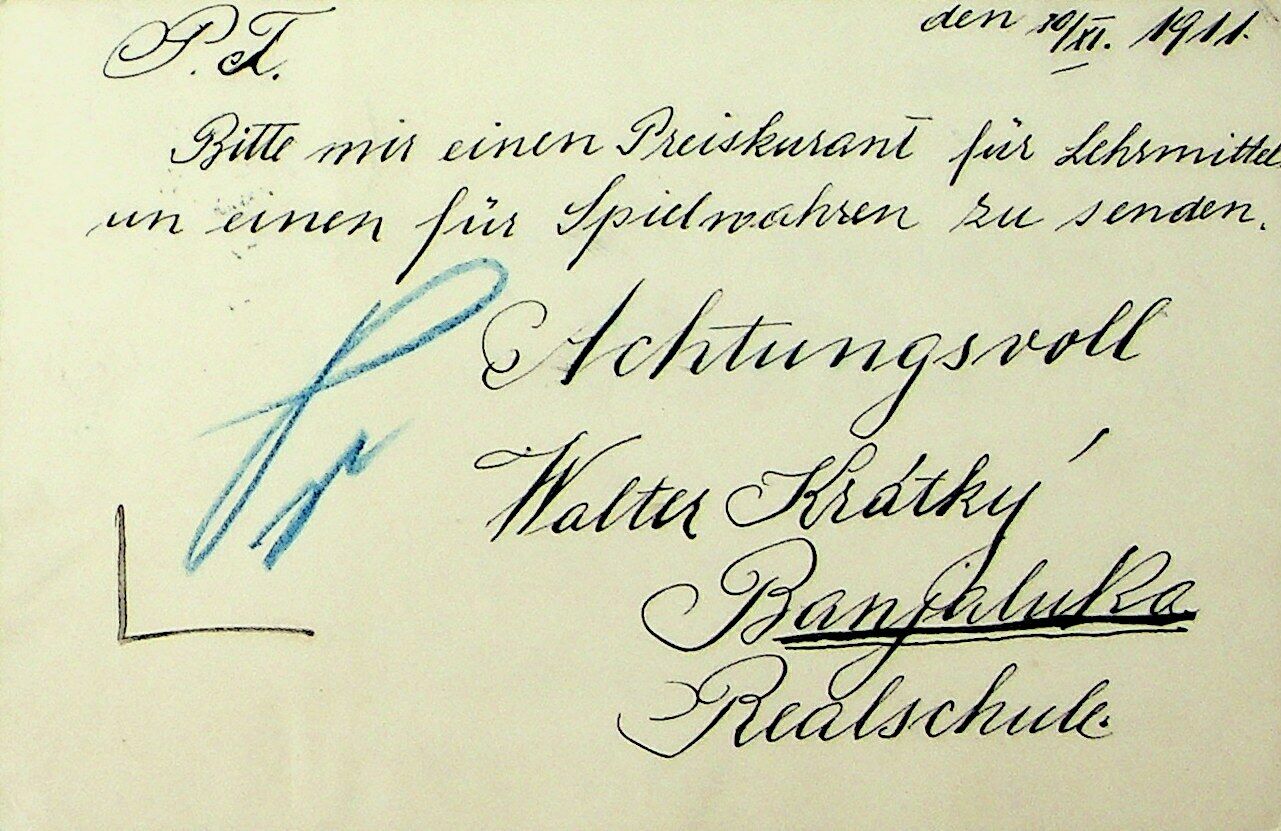 den 10/XI. 1911.
P. T.
Bitte mir einen Preiskurant für Lehrmittel
un einen für Spielwahren zu senden.
Achtungsvoll
Walter Krátký
Banjaluka
Realschule.